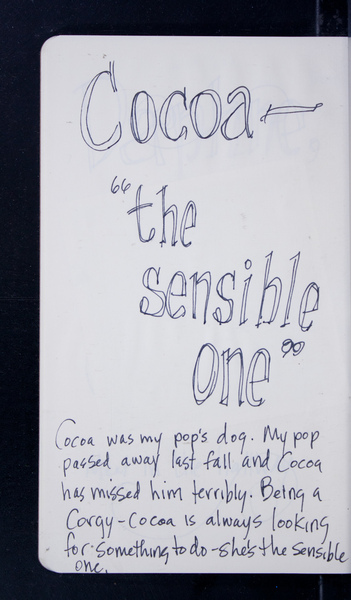 Cocoa—
"the
sensible
one"
Cocoa was my pop's dog. My pop
passed away last fall and Cocoa
has missed him terribly. Being a
Corgy-Cocoa is always looking
for something to do-she's the sensible
one.